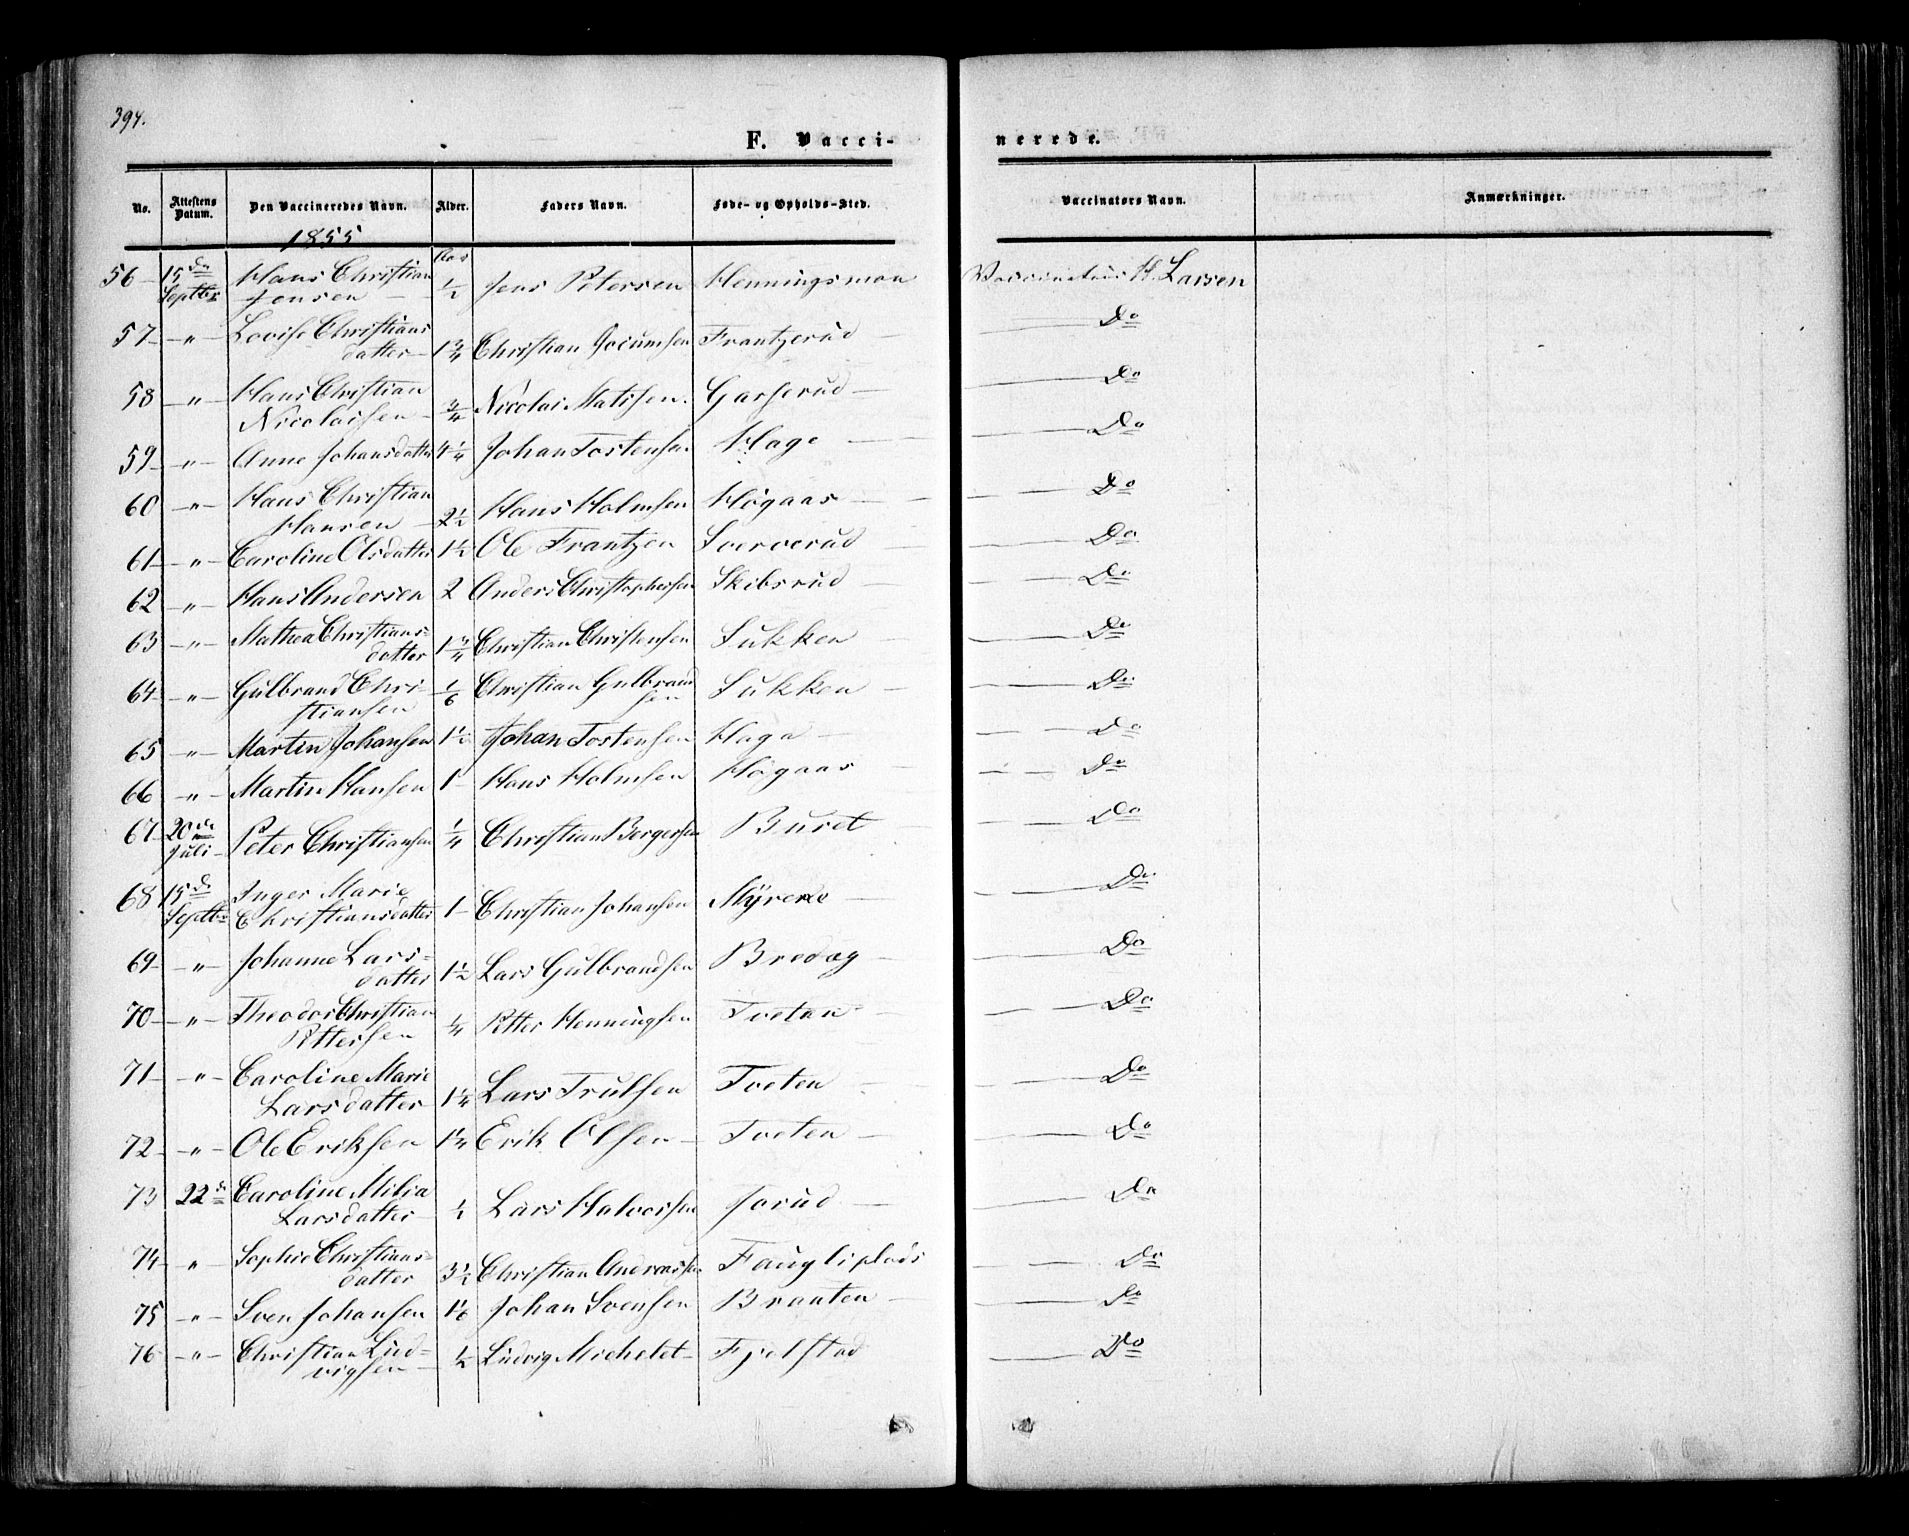 394.
F. Vacci-
nerede.
No. | Attestens Datum. | Den Vaccineredes Navn. | Alder. | Faders Navn. | Føde- og Opholds-Sted. | Vaccinators Navn. | Anmærkninger.
1855
Aar
56 – 15de Septbr | Hans Christian Jensen – | ½ | Jens Petersen | Henningsmon | Vaccinateur H. Larsen
57 – " – | Lovise Christians datter – | 1¾ | Christian | Frantzerud – | Do
58 – " – | Hans Christian Nicolaisen – | ¾ | Nicolai Matisen. | Garserud – | Do
59 – " – | Anne Johansdatter | 4¼ | Johan Tostensen | Hage – | Do
60 – " – | Hans Christian Hansen – | 2½ | Hans Holmsen | Høgaas – | Do
61 – " – | Caroline Olsdatter | 1½ | Ole Frantzen | Sververud | Do
62 – " – | Hans Andersen | 2 | Anders Christophersen | Skibsrud – | Do
63 – " – | Mathea Christians= datter | 1¾ | Christian Christensen | Sukken – | Do
64 – " – | Gulbrand Chri- stiansen | 1/6 | Christian Gulbrand sen | Sukken – | Do
65 – " – | Martin Johansen | 1½ | Johan Tostensen | Haga – | Do
66 – " – | Martin Hansen | 1 – | Hans Holmsen | Høgaas – | Do
67 – 20de Juli – | Peter Christiansen | ¼ | Christian Bergersen | Buret | Do
68 15de Septbr | Inger Marie Christiansdatter | 1 – | Christian Johansen | – | Do
69 – " – | Johanne Lars= datter | 1½ | Lars Gulbrandsen | Bredag – | Do
70 – " – | Theodor Christian Pettersen | ¼ | Petter Henningsen | Tveten – | Do
71 – " – | Caroline Marie Larsdatter | 1¼ | Lars Trulsen | Tveten – | Do
72 – " – | Ole Eriksen | 1¼ | Erik Olsen – | Tveten – | Do
73 22de | Caroline Milia Larsdatter – | ½ | Lars Halvorsen | Jorud – | Do
74 – " | Sophie Christians= datter | 3½ | Christian Andreassen | Faugliplads | Do
75 – " – | Sven Johansen | 1 1/6 | Johan Svensen | Braaten – | Do
76 – " – | Christian Lud= vigsen – | ½ | Ludvig Michelet – | Fjelstad | Do